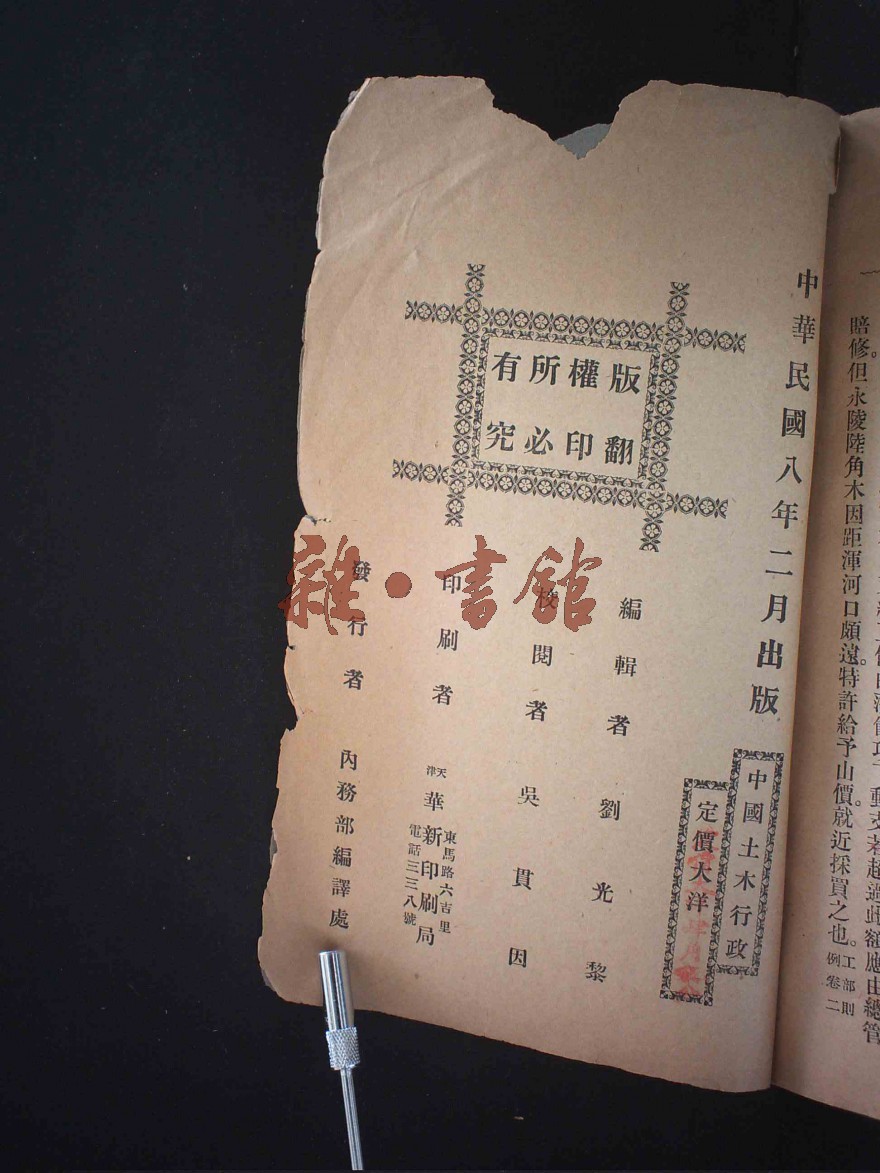 賠修。但永陵陸角木因距渾河口頗遠。特許給予山價。就近採買之也。工部則例卷二
中華民國八年二月出版
中國土木行政
定價大洋
版權所有
翻印必究
編輯者 劉光黎
校閱者 吳貫因
印刷者 天津華新印刷局
東馬路六吉里
電話三三八號
發行者 內務部編譯處
雜·書館